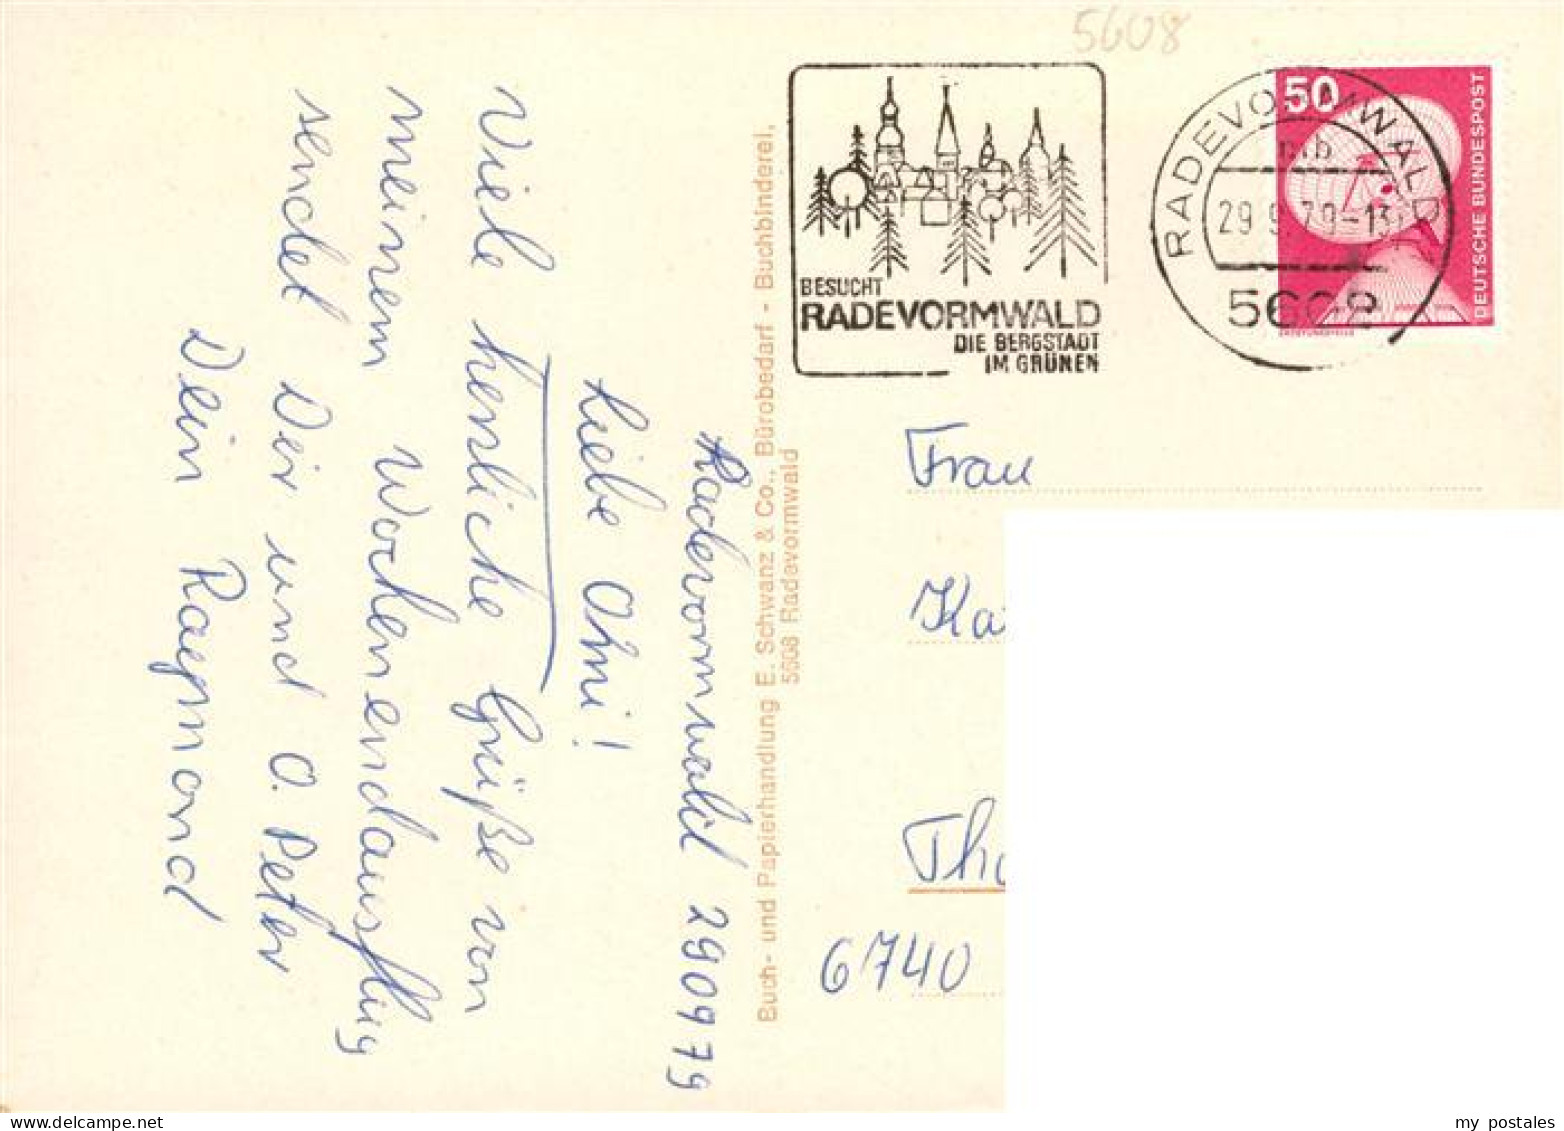 5608
BESUCHT
RADEVORMWALD
DIE BERGSTADT
IM GRÜNEN
RADEVORMWALD
mb
29.9.79-13
5608
50
DEUTSCHE BUNDESPOST
Radevormwald 290979
Liebe Omi!
Viele herzliche Grüße von
meinem Wochenendausflug
sendet Dir und O. Peter
Dein Raymond
Buch- und Papierhandlung E. Schwanz & Co., Bürobedarf - Buchbinderei,
5608 Radevormwald
Frau
Ka
Th
6740
my postales